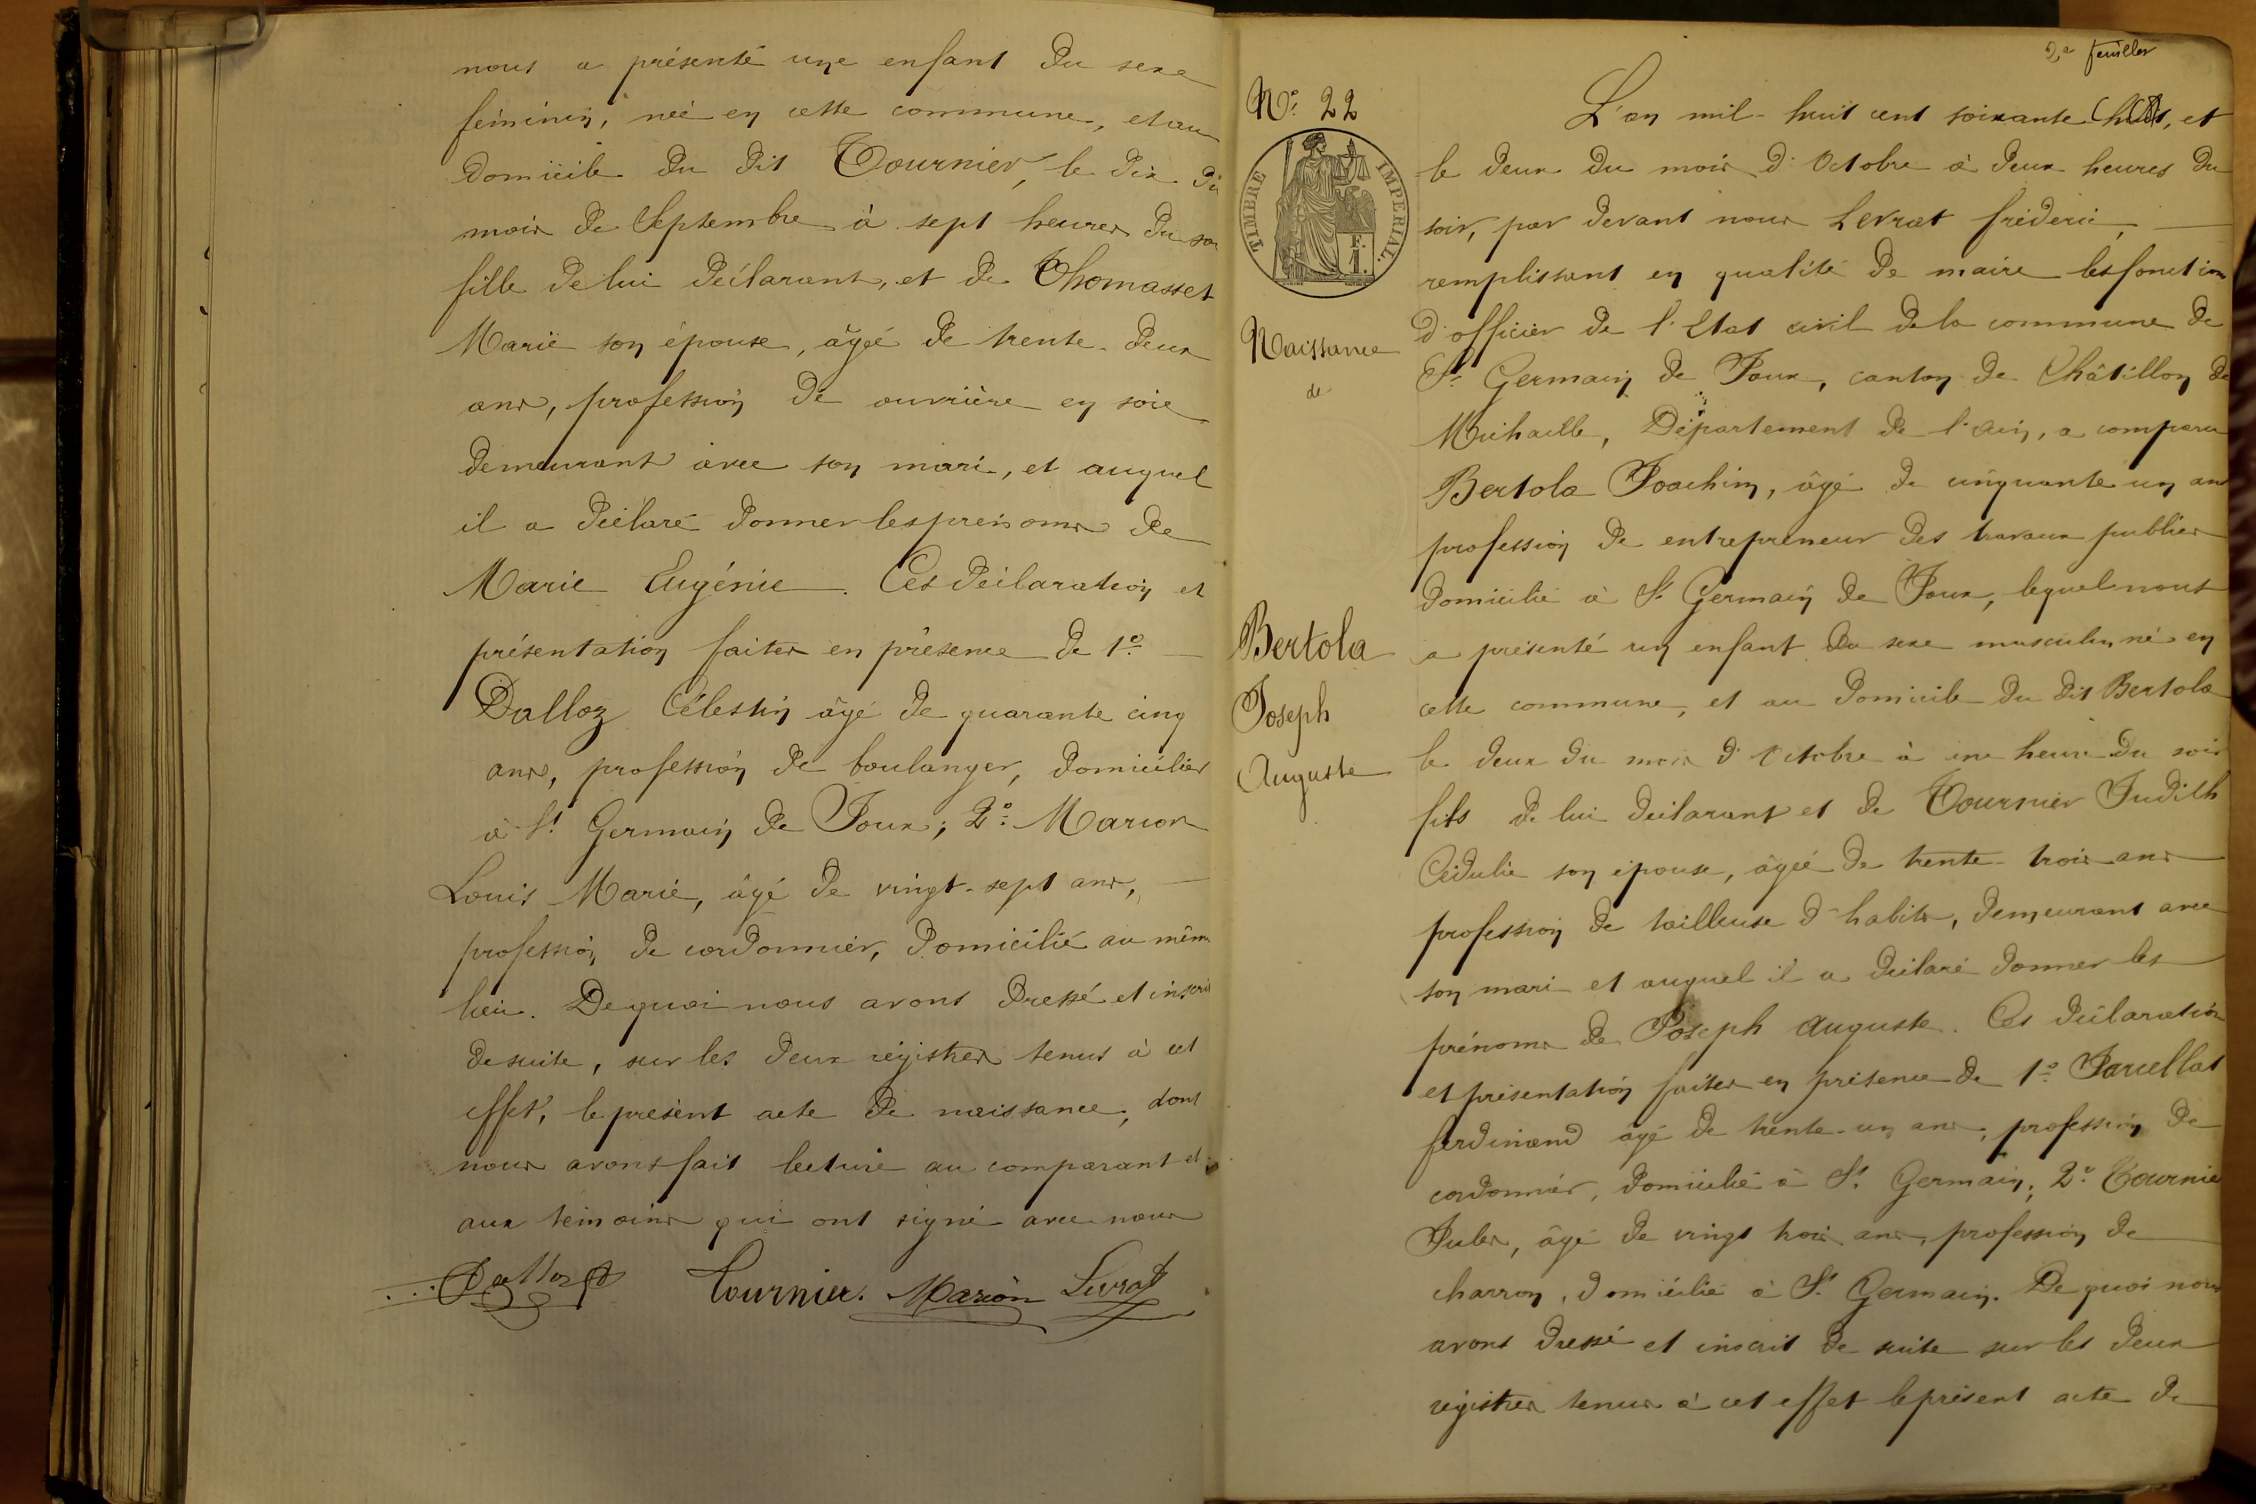 nous a présenté une enfant du sexe
féminin, née en cette commune, et au
domicile du dit Tournier, le dix du
mois de Septembre à sept heures du soi
fille de lui déclarant, et de Thomasset
Marie son épouse, âgée de trente-deux
ans, profession de ouvrière en soie
demeurant avec son mari, et auquel
il a déclaré donner les prénoms de
Marie Eugénie. Ces déclaration et
présentation faites en présence de 1°
Dalloz Célestin âgé de quarante cinq
ans, profession de boulanger, domicilier
à St Germain de Joux; 2° Marion
Louis Marie, âgé de vingt-sept ans,
profession de cordonnier, domicilié au même
lieu. De quoi nous avons dressé et inscrit
de suite, sur les deux régistres tenus à cet
effet, le présent acte de naissance, dont
nous avons fait lecture au comparant et
aux témoins qui ont signé avec nous
Dalloz Tournier. Marion Levrat
2e feuillet
N° 22
TIMBRE IMPERIAL.
F.
1.
Naissance
de
Bertola
Joseph
Auguste
L'an mil-huit cent soixante huit, et
le deux du mois d'Octobre à deux heures du
soir, par devant nous Levrat frédéric,
remplissant en qualité de maire les fonction
d'officier de l'Etat civil de la commune de
St Germain de Joux, canton de Châtillon de
Michaille, Département de l'ain, a comparu
Bertola Joachim, âgé de cinquante un ans
profession de entrepreneur des travaux publics
domicilié à St Germain de Joux, lequel nous
a présenté un enfant du sexe masculin, né en
cette commune, et au domicile du dit Bertola
le deux du mois d'Octobre à une heure du soir
fils de lui déclarant et de Tournier Judith
Cédulie son épouse, âgée de trente-trois ans
profession de tailleuse d'habits, demeurant avec
son mari et auquel il a déclaré donner les
prénoms de Joseph auguste. Ces déclaration
et présentation faites en présence de 1° Jarcellat
ferdinand âgé de trente-un ans, profession de
cordonnier, domicilié à St Germain; 2° Tournie
Jules, âgé de vingt trois ans, profession de
charron, domicilié à St Germain. De quoi nous
avons dressé et inscrit de suite sur les deux
régistres tenus à cet effet le présent acte de